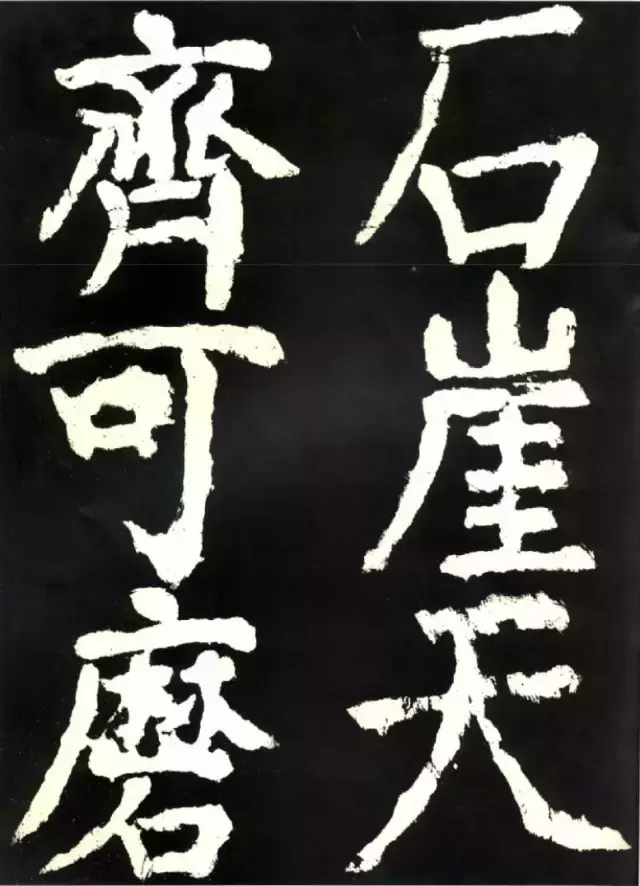 石崖天
齊可磨